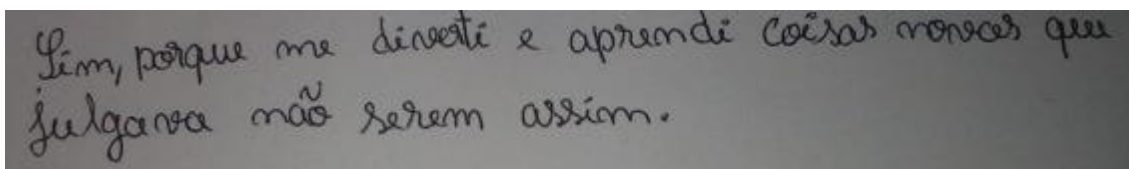 Sim, porque me diverti e aprendi coisas novas que
julgava não serem assim.